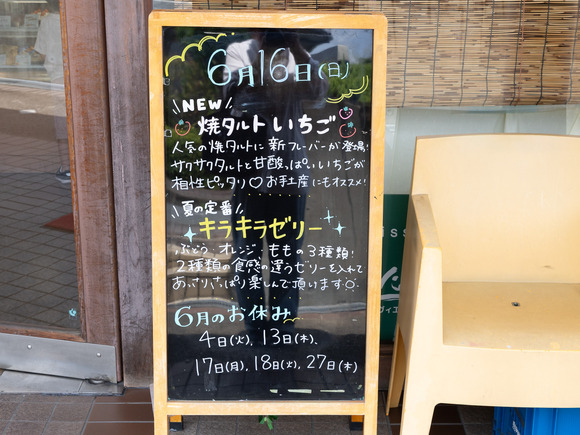 6月16日(日)
NEW
焼タルト いちご
人気の焼タルトに新フレーバーが登場!
サクサクタルトと甘酸っぱいいちごが
相性ピッタリ♡お手土産にもオススメ!
夏の定番
キラキラゼリー
ぶどう・オレンジ・ももの3種類!
2種類の食感の違うゼリーを入れて
あっさりさっぱり楽しんで頂けます
6月のお休み
4日(火), 13日(木),
17日(月), 18日(火), 27日(木)